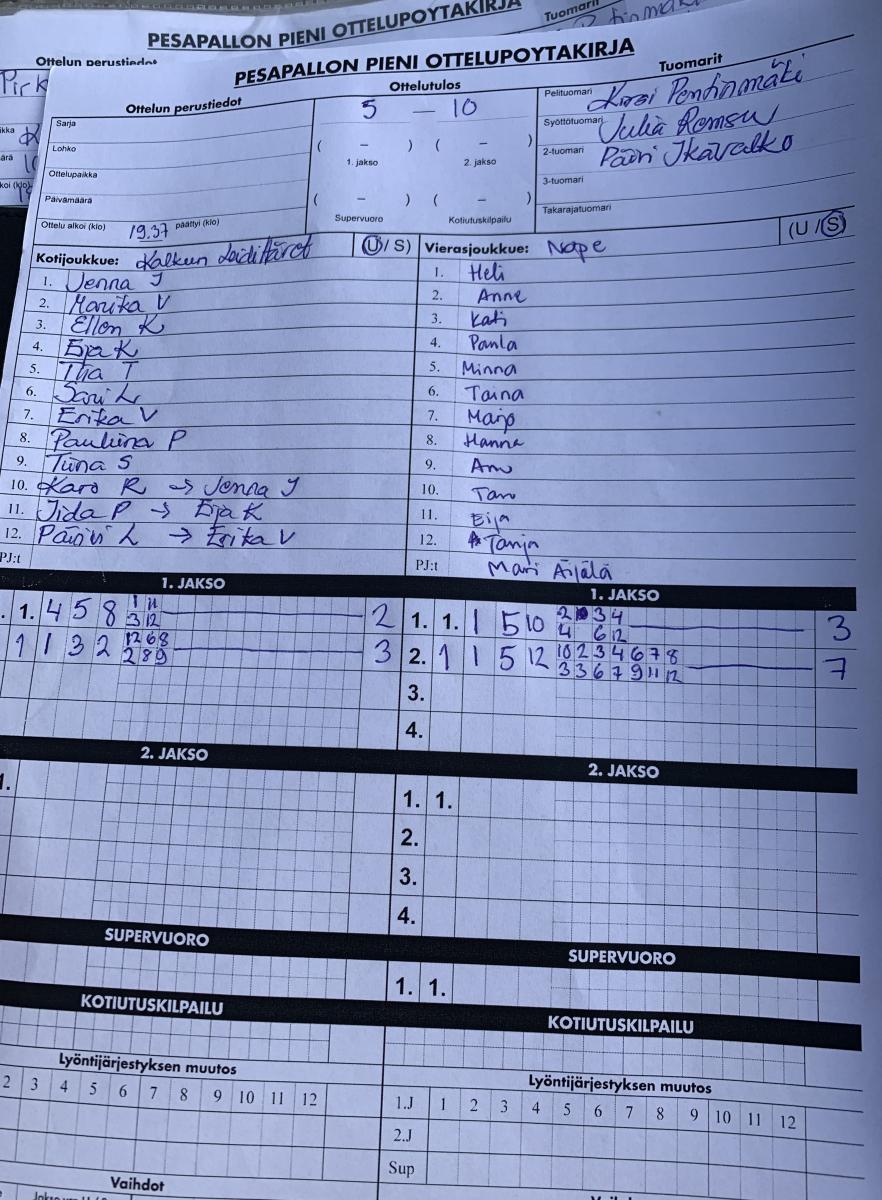 PESAPALLON PIENI OTTELUPOYTAKIRJA
Tuomarit
Ottelun perustiedot
PESAPALLON PIENI OTTELUPOYTAKIRJA
Ottelun perustiedot
Ottelutulos
Tuomarit
Sarja
Lohko
Ottelupaikka
Päivämäärä
Ottelu alkoi (klo) 19.37 päättyi (klo)
5 — 10
( – ) ( – )
1. jakso 2. jakso
( – ) ( – )
Supervuoro Kotiutuskilpailu
Pelituomari Kirsi Penttinmäki
Syöttötuomari Julia Romsu
2-tuomari Päivi Ikävalko
3-tuomari
Takarajatuomari
Kotijoukkue: Kalkun Leidittäret (U / S)
1. Jenna J
2. Marika V
3. Ellen K
4. Eija K
5. Tiia T
6. Sari L
7. Erika V
8. Pauliina P
9. Tiina S
10. Karo R → Jenna J
11. Iida P → Eija K
12. Päivi L → Erika V
PJ:t
Vierasjoukkue: Nope (U / S)
1. Heli
2. Anne
3. Kati
4. Paula
5. Minna
6. Taina
7. Marjo
8. Hanna
9. Anu
10. Taru
11. Eija
12. Tanja
PJ:t Mari Äijälä
1. JAKSO
1. 4 5 8 1 11 2
3 12
1 1 3 2 12 6 8 3
2 8 9
1. JAKSO
1. 1. 1 5 10 2 3 4 3
4 6 12
2. 1 1 5 12 10 2 3 4 6 7 8 7
3 3 6 7 9 11 12
3.
4.
2. JAKSO
1.
2. JAKSO
1. 1.
2.
3.
4.
SUPERVUORO
SUPERVUORO
1. 1.
KOTIUTUSKILPAILU
KOTIUTUSKILPAILU
Lyöntijärjestyksen muutos
2 3 4 5 6 7 8 9 10 11 12
Lyöntijärjestyksen muutos
1.J 1 2 3 4 5 6 7 8 9 10 11 12
2.J
Sup
Vaihdot